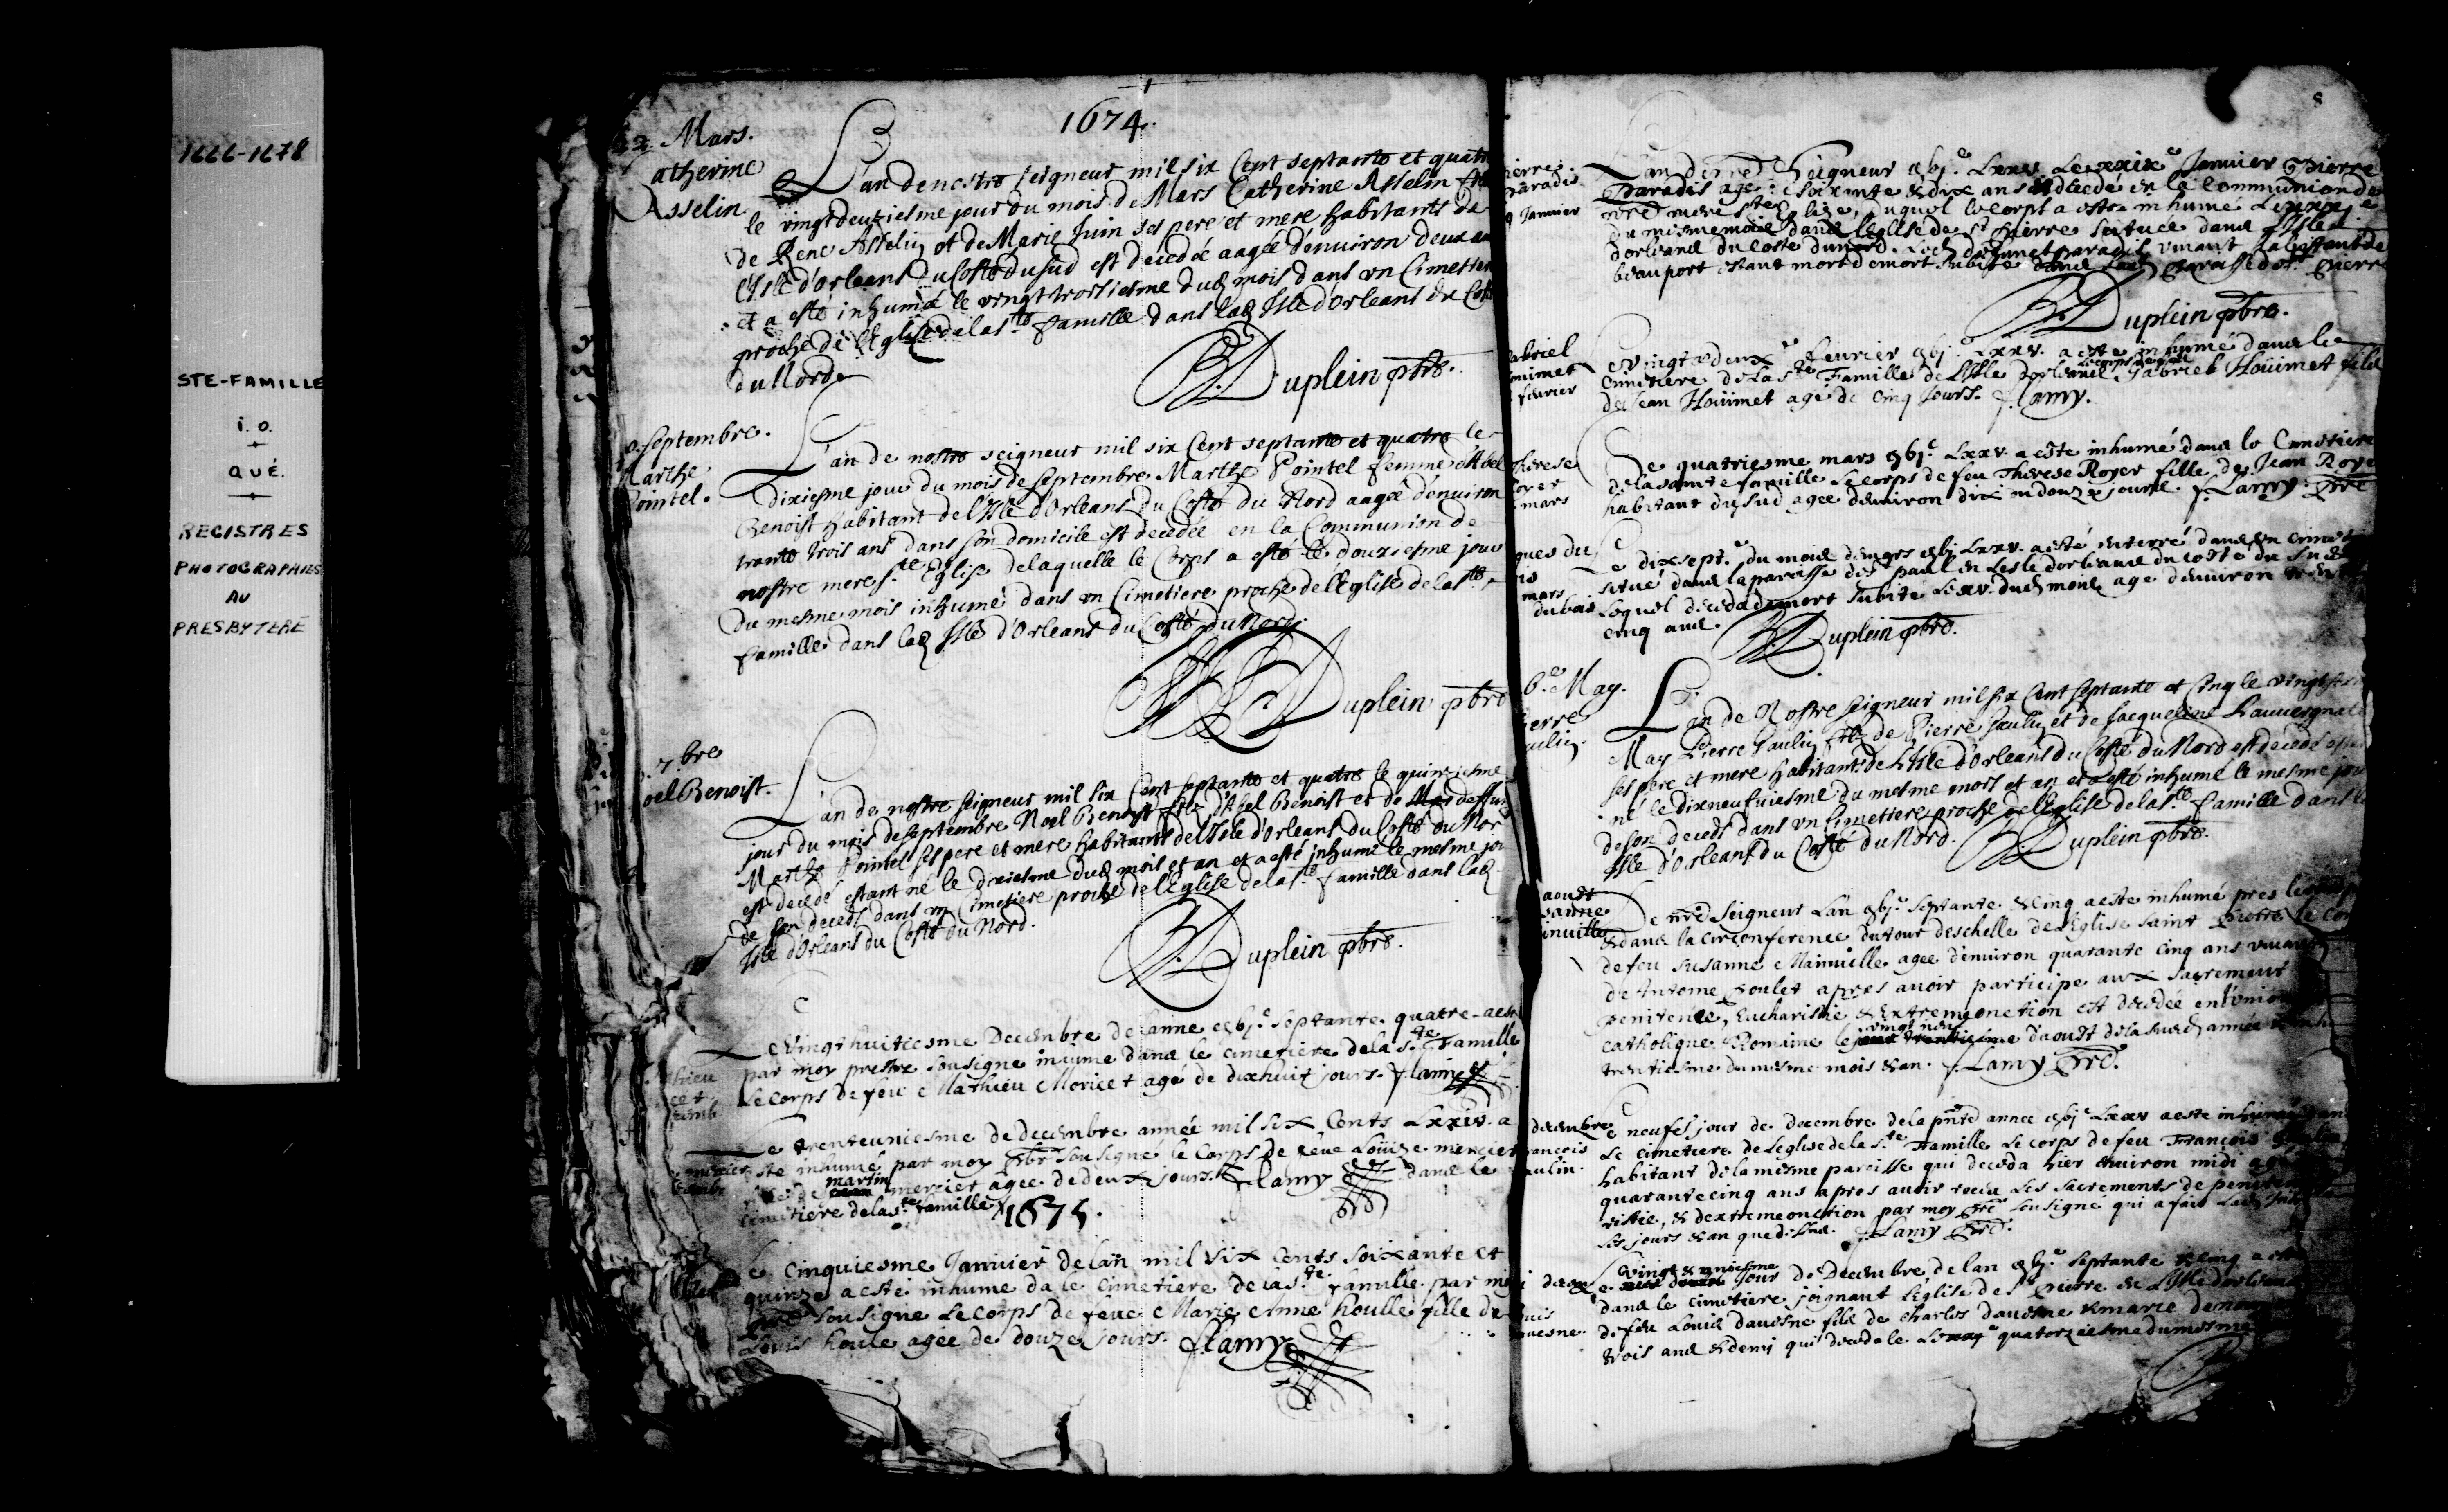 1666-1678
STE-FAMILLE
i. o.
QUÉ.
REGISTRES
PHOTOGRAPHIÉS
AU
PRESBYTERE
1674.
22 Mars.
atherine
Asselin
L'an de nostre seigneur mil six Cent septante et quatre
le vingtdeuxiesme jour du mois de Mars Catherine Asselin
de René Asselin et de Marie Juin ses pere et mere habitants de
l'Isle d'orleans du Costé du sud est decedée aagée d'enuiron deux
et a esté inhumée le vingt troisiesme dud mois dans un Cimetiere
proche de l'Eglise de la ste famille dans lad Isle d'orleans du Costé
du Nord
Duplein pbre.
0. septembre.
Marthe
Pointel.
L'an de nostre seigneur mil six Cent septante et quatre le
dixiesme jour du mois de septembre Marthe Pointel femme d'Abel
Benoist habitant de l'Isle d'Orleans du Costé du Nord aagée d'enuiron
trante trois ans dans son domicile est decedée en la Communion de
nostre mere ste Eglise de laquelle le Corps a esté le douziesme jour
du mesme mois inhumé dans un Cimetiere proche de l'Eglise de la ste
famille dans lad Isle d'Orleans du Costé du Nord.
Duplein pbre
7.bre
oel Benoist.
L'an de nostre seigneur mil six Cent septante et quatre le quinziesme
jour du mois de septembre Noel Benoist fils d'Abel Benoist et de deffun
Marthe Pointel ses pere et mere habitants de l'Isle d'orleans du Costé du Nor
est decedé estant né le dixiesme dud mois et an et a esté inhumé le mesme jo
de son deceds dans un Cimetiere proche de l'Eglise de la ste famille dans lad
Isle d'Orleans du Costé du Nord.
Duplein pbre.
Le vingt huitiesme Decembre de lanne gbjc septante quatre a est
par moy prestre soussigne inhumé dans le cimetiere de la ste Famille
le corps de feu Mathieu Moricet agé de dixhuit jours. f lamy
Le trenteuniesme de decembre année mil six Cents Lxxiv. a
sté inhumé par moy pbr sousigné le Corps de feue Loüise mercier
martin
mercier agee de deux jours. f lamy dans le
cimetiere de la ste famille
1675.
Le cinquiesme Januier de lan mil six cents soixante et
quinze a esté inhume da le cimetiere de la ste famille par moi
pre sousigne Le corps de feue Marie Anne houlle fille de
Louis houle agée de douze jours. f lamy
8
ierre
Paradis
Januier
Lan de nre Seigneur gbjc Lxxv. Le xxixe Januier Pierre
Paradis agé soixante & dix ans decedé en la communion de
nre mere ste Eglize, duquel le corps a esté inhumé
du mesme mois dans l'Eglise de st Pierre scituée dans l'Isle
dorleans du costé du nord.
beauport estant mort de mort subite Pierre
Duplein pbre.
abriel
ouimet
feurier
Le vingt & deuxe feurier gbjc Lxxv. a esté inhumé dans le
cimitiere de la ste Famille de L'Isle dorleans Gabriel Hoüimet fils
de Jean Hoüimet agé de cinq Jours. f. lamy.
Therese
oyer
mars
Le quatriesme mars gbjc Lxxv. a este inhumé dans le Cimitiere
de la sainte famille Le corps de feu Therese Royer fille de Jean Roye
habitant du sud agee denuiron dix ou douze jours. f. Lamy Pre
ques du
is
mars
dubois
Le dixsepte du mois de mars gbjc Lxxv. a esté enterré dans un cimet
situé dans la paroisse de st paul en Lisle dorleans du costé du sud
Lequel deceda de mort subite Le xv. dud mois agé denuiron
cinq ans.
Duplein pbre.
6.e May.
ierre
aulin.
L'an de Nostre seigneur mil six Cent septante et Cinq le vingt
May Pierre Paulin fils de Pierre Paulin et de Jacqueline Lauuergnat
ses pere et mere habitants de L'Isle d'Orleans du Costé du Nord est decedé
né le dixneufuiesme du mesme mois et an et a esté inhumé le mesme jou
de son deceds dans un Cimetiere proche de l'Eglise de la ste famille dans l
Isle d'orleans du Costé du Nord.
Duplein pbre.
aoust
sanne
inuille
De nre Seigneur Lan gbjc septante & cinq a este inhumé pres
& dans la circonference du tour deschelle de l'Eglise saint Pierre Le cor
de feu Susanne Mainuille agee d'enuiron quarante cinq ans viuant
de Antoine Poulet apres auoir participe aux sacrement
penitence, Eucharistie & Extremeonction est decedée en l'union
vingt neuf
catholique & Romaine le d'aoust de la sud année
trentiesme du mesme mois & an. f. Lamy Pre.
decembre
rancois
aulin.
Le neufe jour de decembre de la pnte annee gbjc Lxxv a este inhumé dan
Le cimetiere de Leglise de la ste Famille Le corps de feu François
habitant de la mesme paroisse qui deceda hier enuiron midi
quarantecinq ans apres auoir receu Les sacrements de peniten
ristie, & dextremeonction par moy pre sousigné qui a fait
Les jours & an que dessus. f. Lamy Pre.
uis
auesne.
vingt & uniesme
Le jour de Decembre de lan gbjc septante & cinq a
dans le cimetiere joignant l'Eglise de st Pierre en L'Isle dorleans
de feu Louis dauesne fils de charles dauesne & marie
trois ans & demi qui deceda le quatorziesme du mesme